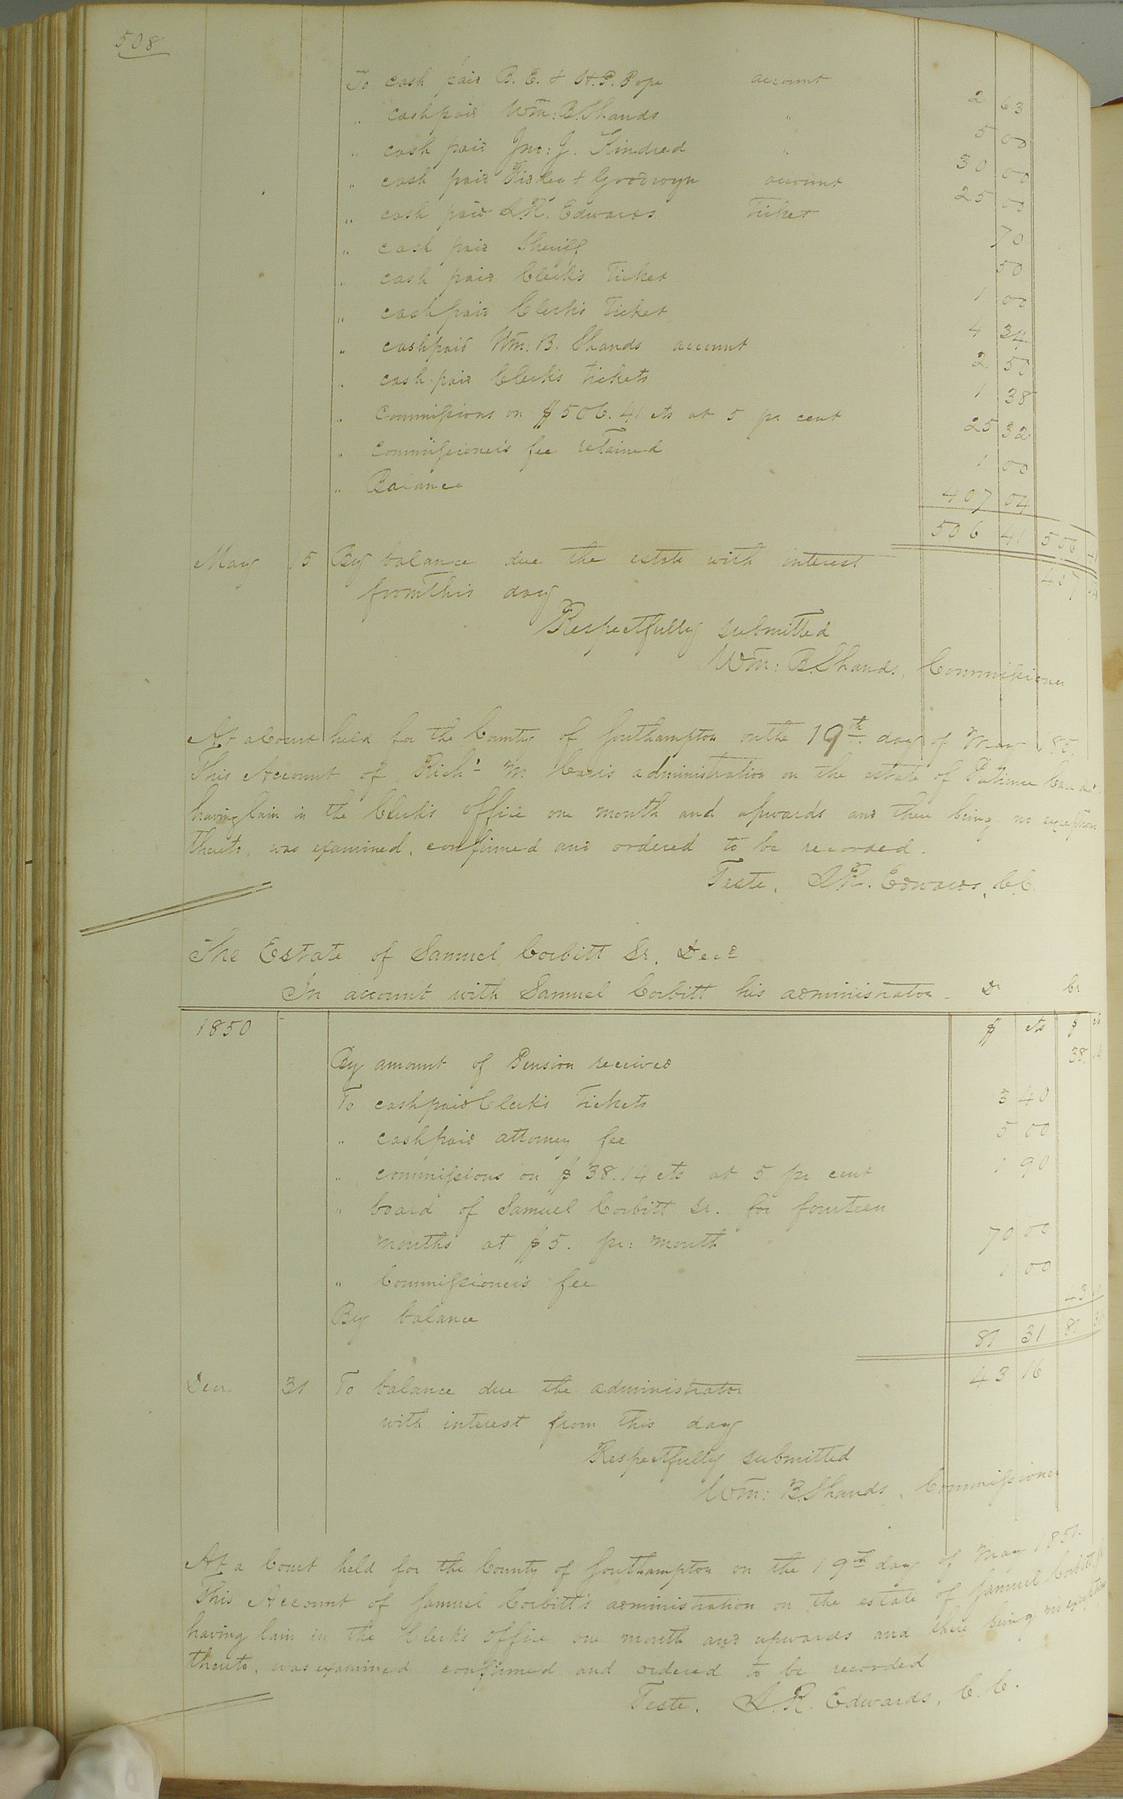 508
To cash paid B. E. & H. P. Pope account 2 63
" cash paid Wm: B. Shands " 5 00
" cash paid Jno: J. Kindred " 30 00
" cash paid & Goodwyn account 25 00
" cash paid L. R. Edwards Ticket 70
" cash paid Sheriff 50
" cash paid Clerk's Ticket 1 00
" cash paid Clerk's Ticket 4 34
" cash paid Wm. B. Shands account 2 50
" cash paid Clerk's Tickets 1 38
" Commissions on $506.41 cts at 5 pr cent 25 32
" Commissioner's fee retained 1 00
" Balance 407 04
506 41 506 41
May 15 By balance due the estate with interest
from this day 407 04
Respectfully submitted
Wm: B. Shands, Commissioner
At a Court held for the County of Southampton on the 19th day of May 185
This Account of Richd M. administration on the estate of Patience
having lain in the Clerk's office one month and upwards and there being no exceptions
thereto, was examined, confirmed and ordered to be recorded.
Teste, L. R. Edwards, C.C.
The Estate of Samuel Corbitt Sr. Decd
In account with Samuel Corbitt his administrator Dr Cr
1850 $ cts $ cts
By amount of Pension received 38 14
To cash paid Clerk's Tickets 3 40
" cash paid attorney fee 5 00
" commissions on $38.14 cts at 5 pr cent 1 90
" board of Samuel Corbitt Sr. for fourteen
months at $5. pr: month 70 00
" Commissioner's fee 1 00
By balance 43
81 31 81 31
Decr 31 To balance due the administrator 43 16
with interest from this day
Respectfully submitted
Wm: B. Shands, Commissioner
At a Court held for the County of Southampton on the 19th day of May 1851.
This Account of Samuel Corbitt's administration on the estate of Samuel Corbitt
having lain in the Clerk's office one month and upwards and there being no exceptions
thereto, was examined confirmed and ordered to be recorded
Teste, L. R. Edwards, C. C.